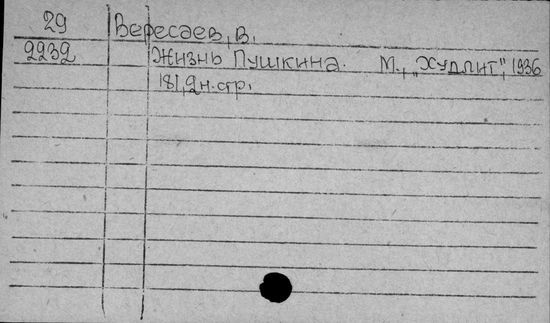 29 Вересаев, В.
2232 Жизнь Пушкина. М., „Худлит", 1936
181, 2н.стр.